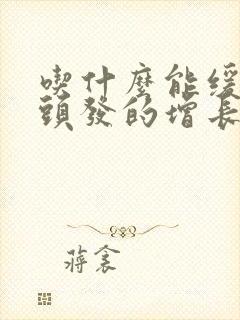 喫什麼能緩
頭發的增長
蔣衾